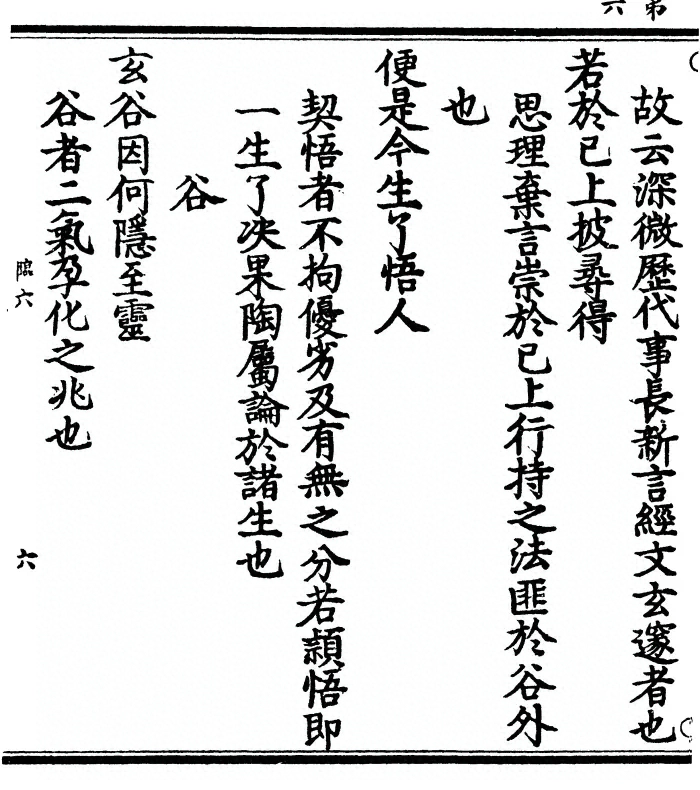 故云深微歷代事長新言經文玄邃者也
若於已上披尋得
思理棄言崇於已上行持之法匪於谷外
也
便是今生了悟人
契悟者不拘優劣及有無之分若頴悟即
一生了決果陶屬論於諸生也
谷
玄谷因何隱至靈
谷者二氣孕化之兆也
臨六
六